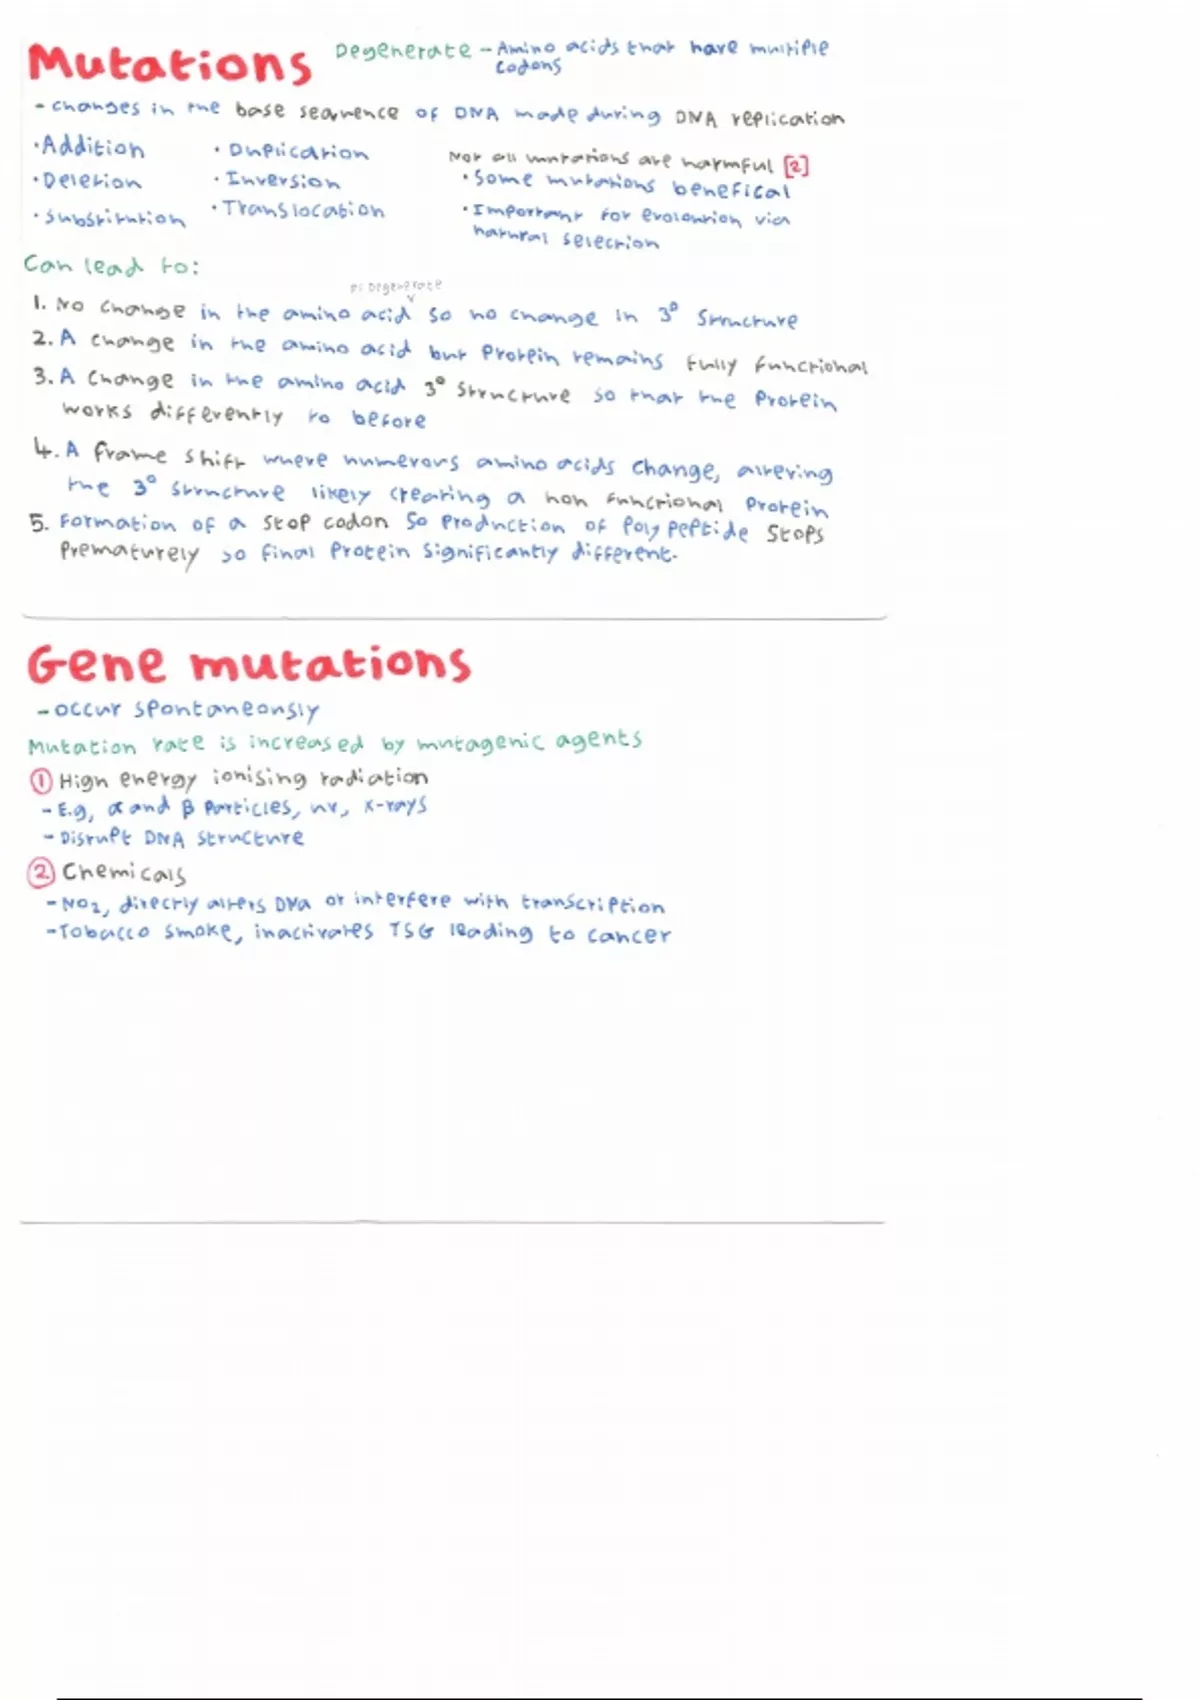 Mutations
Degenerate - Amino acids that have multiple
codons
- changes in the base sequence of DNA made during DNA replication
• Addition
• Deletion
• Substitution
• Duplication
• Inversion
• Translocation
Not all mutations are harmful [2]
• Some mutations benefical
• Important for evoloution via
natural selection
Can lead to:
Degenerate
1. No change in the amino acid so no change in 3° Structure
2. A change in the amino acid but Protein remains fully functional
3. A change in the amino acid 3° Structure so that the Protein
works differently to before
4. A frame shift where numerous amino acids change, altering
the 3° Structure likely creating a non functional Protein
5. Formation of a stop codon so Production of Polypeptide stops
Prematurely so final Protein significantly different.
Gene mutations
- occur spontaneously
Mutation rate is increased by mutagenic agents
① High energy ionising radiation
- E.g, α and β Particles, uv, X-rays
- Disrupt DNA structure
② Chemicals
- NO2, directly alters DNA or interfere with transcription
- Tobacco smoke, inactivates TSG leading to cancer